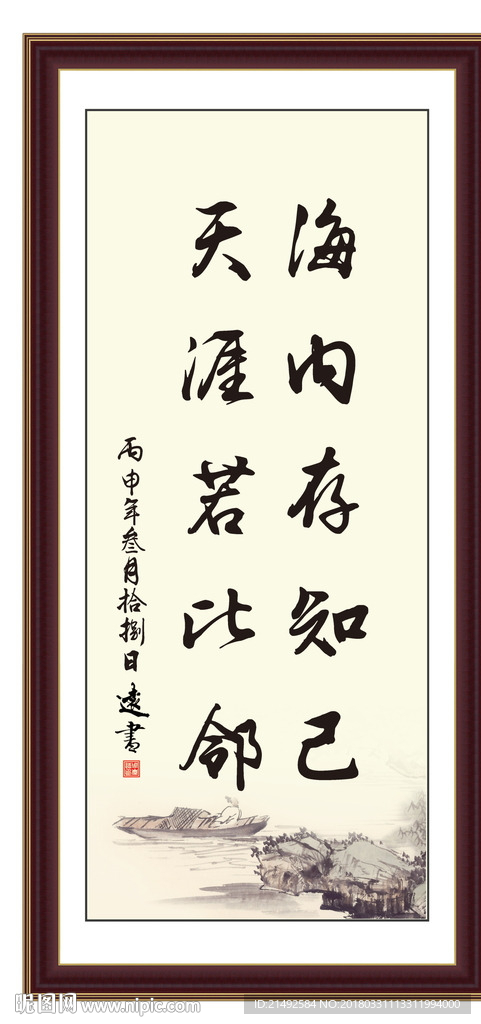 海内存知己
天涯若比邻
丙申年叁月拾捌日遠書
昵图网 www.nipic.com
ID:21492584 NO:20180331113311994000